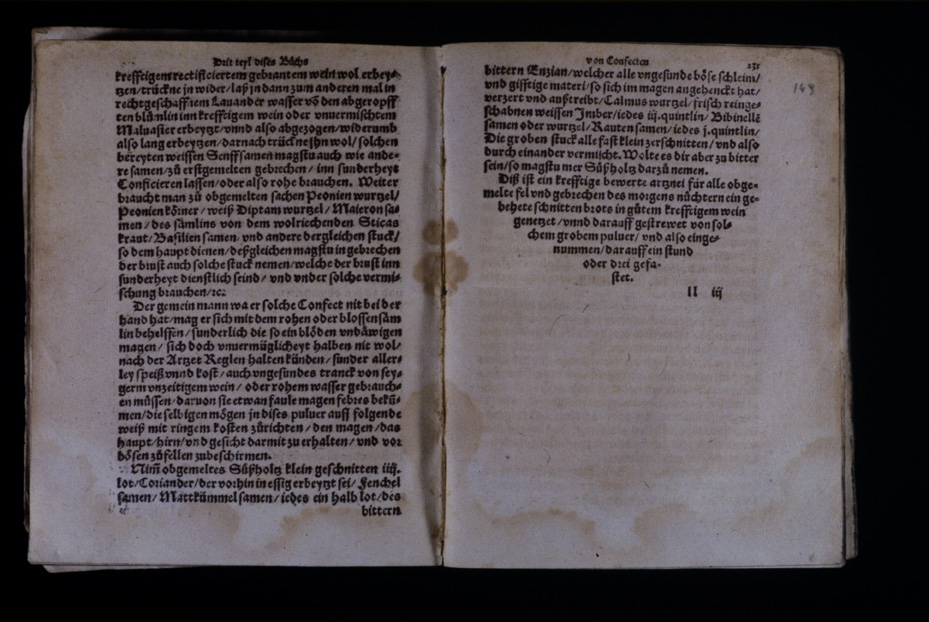 Drit teyl dises Bůchs
krefftigem rectificiertem gebrantem wein wol erbey⸗
tzen/trückne jn wider/laß jn dann zum anderen mal in
rechtgeschaffnem Lauander wasser võ den abgeropff
ten blůmlin inn krefftigem wein oder vnuermischtem
Maluasier erbeytzt/vnnd also abgezogen/widerumb
also lang erbeytzen/darnach trückne jhn wol/solchen
bereyten weissen Senffsamen magstu auch wie ande⸗
re samen/zů erstgemelten gebrechen/inn sunderheyt
Conficieren lassen/oder also rohe brauchen. Weiter
braucht man zů obgemelten sachen Peonien wurtzel/
Peonien körner/weiß Diptam wurtzel/Maieron sa⸗
men/des sämlins von dem wolriechenden Sticas
kraut/Basilien samen vnd andere dergleichen stuck/
so dem haupt dienen/deßgleichen magstu in gebrechen
der brust auch solche stuck nemen/welche der brust inn
sunderheyt dienstlich seind/vnd vnder solche vermi⸗
schung brauchen/ꝛc.
Der gemein mann wa er solche Confect nit bei der
hand hat/mag er sich mit dem rohen oder blossen säm
lin behelffen/sunderlich die so ein blöden vndäwigen
magen/sich doch vnuermüglicheyt halben nit wol⸗
nach der Artzet Reglen halten künden/sunder aller⸗
ley speiß vnnd kost/auch vngesundes tranck von sey⸗
germ vnzeitigem wein/oder rohem wasser gebrauch⸗
en müssen/daruon sie etwan faule magen febres bekũ⸗
men/die selbigen mögen jn dises puluer auff folgende
weiß mit ringem kosten zůrichten/den magen/das
haupt/hirn/vnd gesicht darmit zu erhalten/vnd vor
bösen zůfellen zubeschirmen.
Nim̃ obgemeltes Süßholtz klein geschnitten iiij.
lot/Coriander/der vorhin in essig erbeytzt sei/Fenchel
samen/Mattkümmel samen/iedes ein halb lot/des
bittern
von Confecten
131
149
bittern Enzian/welcher alle vngesunde böse schleim/
vnd gifftige materi/so sich im magen angehenckt hat/
verzert vnd außtreibt/Calmus wurtzel/frisch reinge⸗
schabnen weissen Imber/iedes iij.quintlin/Bibinellẽ
samen oder wurtzel/Rauten samen/iedes j.quintlin/
Die groben stuck alle fast klein zerschnitten/vnd also
durch einander vermischt. Wolte es dir aber zu bitter
sein/so magstu mer Süßholtz darzů nemen.
Diß ist ein krefftige bewerte artznei für alle obge⸗
melte fel vnd gebrechen des morgens nüchtern ein ge⸗
behete schnitten brots in gůtem krefftigem wein
genetzet/vnnd darauff gestrewet von sol⸗
chem grobem puluer/vnd also einge⸗
nummen/darauff ein stund
oder drei gefa⸗
stet.
ll iij